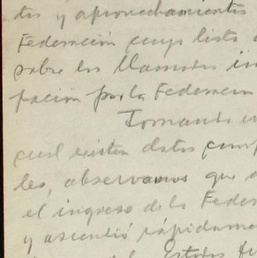 tos y aprovechamientos
Federación cuya lista
sobre los llamados im
pación por la Federación
Tomando en
cual existen datos comp
les, observamos que
el ingreso de la Feder
y ascendió rápidame
Estados